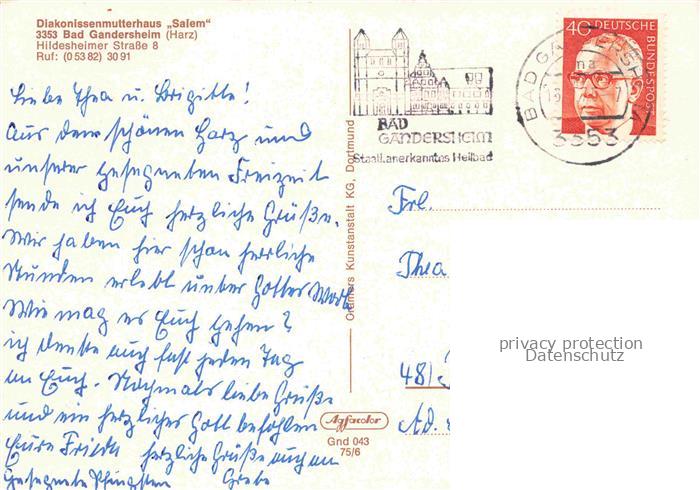 Diakonissenmutterhaus „Salem"
3353 Bad Gandersheim (Harz)
Hildesheimer Straße 8
Ruf: (0 53 82) 30 91
Liebe Thea u. Brigitte!
Aus dem schönen Harz und
unserer gesegneten Freizeit
sende ich Euch herzliche Grüße.
Wir haben hier schon herrliche
Stunden erlebt unter Gottes Wort
Wie mag es Euch gehen?
ich denke auch fast jeden Tag
an Euch. Nochmals liebe Grüße
und ein herzliches Gott befohlen
Eure
herzliche Grüße auch an
Gesegnete Pfingsten
Cramers Kunstanstalt KG, Dortmund
Agfacolor
Gnd 043
75/6
BAD
GANDERSHEIM
Staatl. anerkanntes Heilbad
40 DEUTSCHE BUNDESPOST
BAD GANDERSHEIM
3353
Frl.
Thea
48/
Ad.
privacy protection
Datenschutz